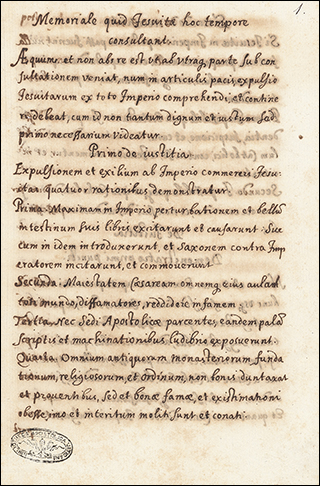 1.
Memoriale quid Jesuitæ hoc tempore
consultant.
Æquum et non abs re est ut ab utraq, parte sub con
sultationem veniat, num in articulis pacis expulsio
Jesuitarum ex toto Imperio comprehendi et contine
ri debeat, cum id non tantum dignum et iustum sed
primo necessarium videatur
Primo de iustitia
Expulsionem et exilium ab Imperio commercij Jesu-
itas quatuor rationibus demonstratur.
Prima. Maximam in Imperio perturbationem et bellũ
intestinum suis libris excitarunt et causarunt. Sue
cum in idem introduxerunt, et Saxonem contra Imp
eratorem incitarunt, et commouerunt
Secunda. Maiestatem Cæsaream omnemq, eius aulam
toti mundo, diffamatores, reddideré infamem
Tertia. Nec Sedi Apostolicæ parcentes, eandem palã
scriptis et machinationibus ludibrio exposuerunt.
Quarta. Omnium antiquorum monasteriorum funda
tionum, religiosorum et ordinum, non bonis duntaxat
et prouentibus, sed et bonæ famæ, et existimationi
obesse, imo et interitum moliti sunt et conati